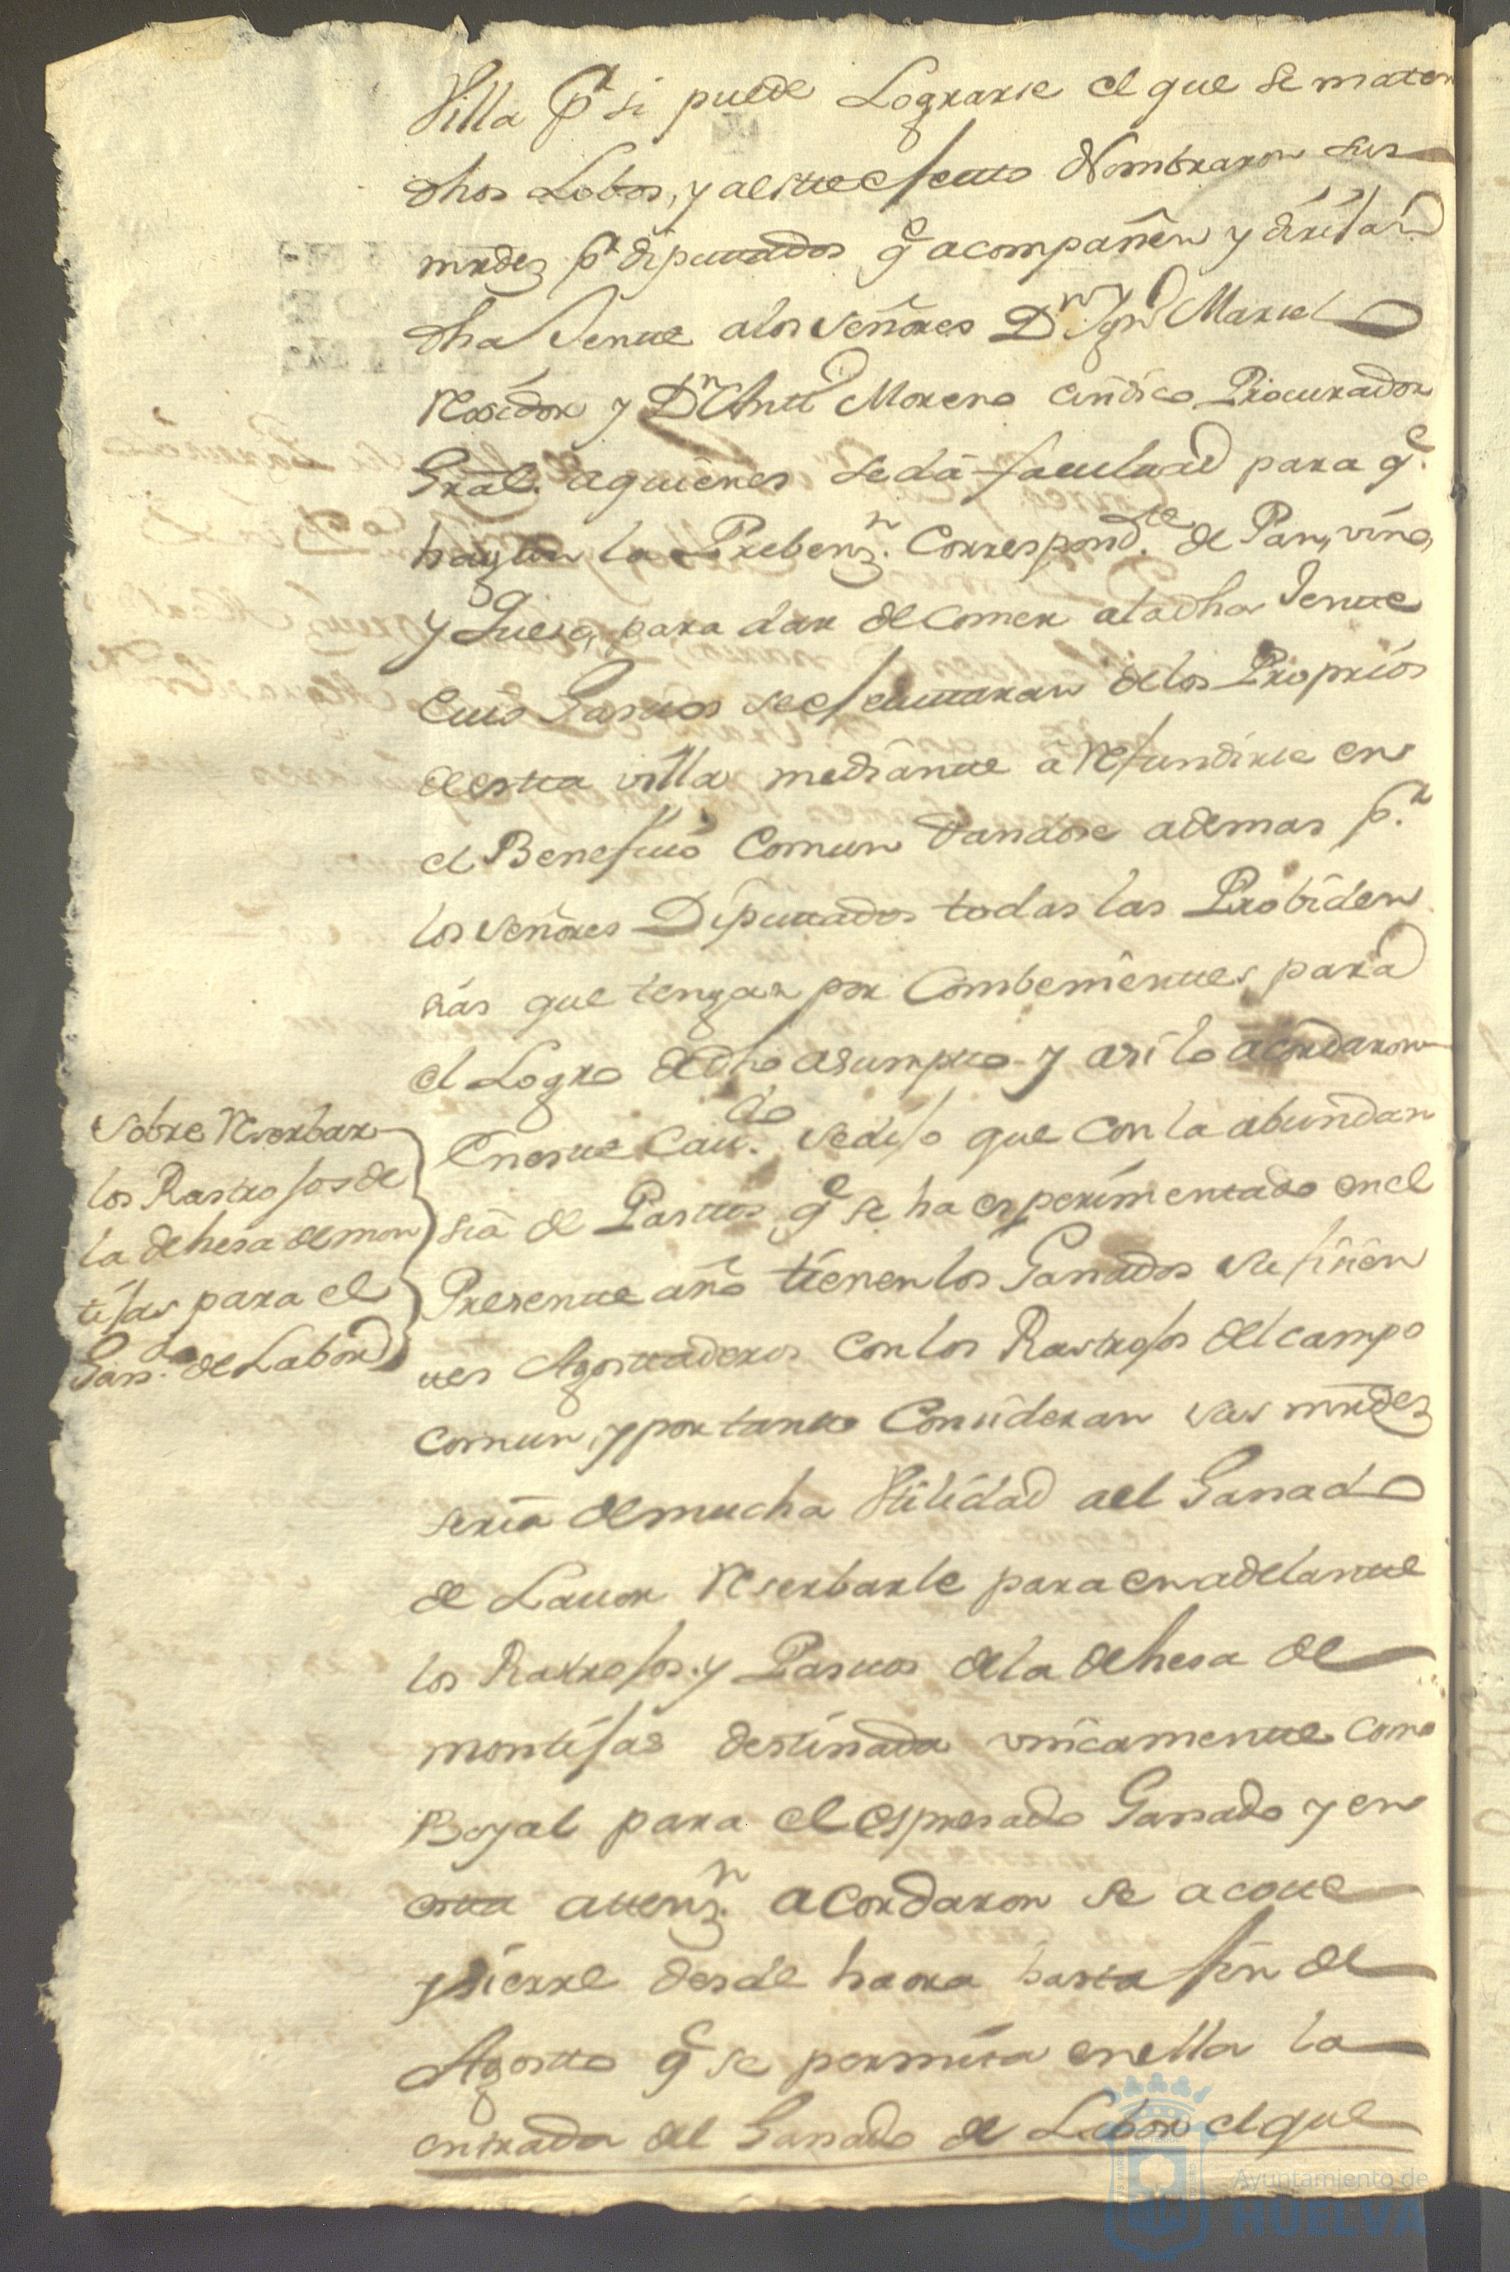 Villa p.r si puede Lograrse el que se maten
dhos Lobos, y a este efecto Nombraron sus
mrdez p.r diputados q.e acompañen y dirijan
dha Jente a los señores D.n Manuel
Rexidor y D.n Antt.o Moreno cindico Procurador
Gral. a quienes se dá facultad para q.e
hagan la Prebenz.n Correspond.te de Pan, vino,
y Queso, para dar de comer a la dha Jente
Cuios Gastos se efectuaran de los Proprios
de esta villa mediante á Refundirse en
el Benefiçio Comun dandose ademas p.r
los señores Diputtados todas las Probiden
sias que tengan por Combenientes para
el Logro de dho asumpto y asi lo acordaron
Sobre Reserbar
los Rastrojos de
la dehesa de mon
tijas para el
Gan.do de Labor
En este Cau.do se dijo que con la abundan
sia de Pastos q.e se ha esperimentado en el
Presente año tienen los Ganados Sufiçien
tes Agostaderos con los Rastrojos del campo
comun, y por tanto Consideran sus mrdez
seria de mucha Utilidad a el Ganado
de Lauor Reserbarle para en adelante
los Rastrojos y Pastos de la dehesa de
montijas destinada vnicamente como
Boyal para el espresado Ganado y en
esta attenz.n acordaron se acote
y sierre desde haora hasta fin de
Agosto q.e se permita en ella la
entrada del Ganado de Labor el que
Ayuntamiento de
HUELVA